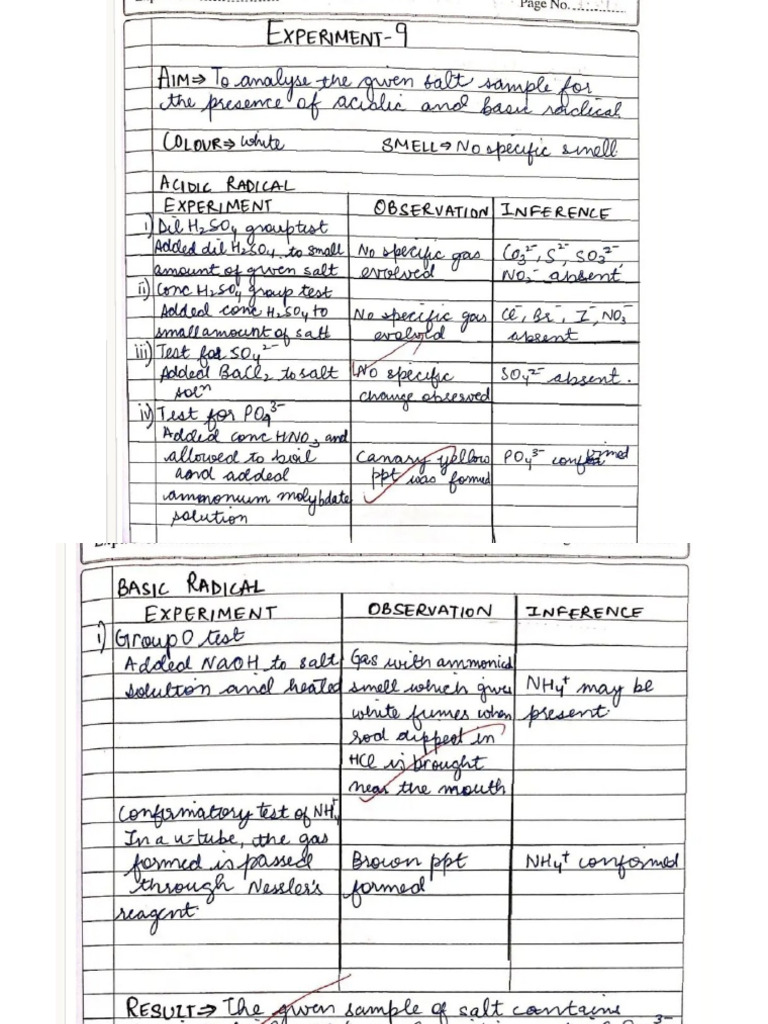 Page No.
EXPERIMENT-9
AIM⇒ To analyse the given salt sample for
the presence of acidic and basic radical
COLOUR⇒ White SMELL⇒ No specific smell.
ACIDIC RADICAL
EXPERIMENT OBSERVATION INFERENCE
i) Dil H₂SO₄ group test
Added dil H₂SO₄ to small No specific gas CO₃²⁻, S²⁻, SO₃²⁻
amount of given salt evolved NO₂⁻ absent.
ii) Conc H₂SO₄ group test
Added conc H₂SO₄ to No specific gas Cl⁻, Br⁻, I⁻, NO₃⁻
small amount of salt evolved absent
iii) Test for SO₄²⁻
Added BaCl₂ to salt No specific SO₄²⁻ absent.
solⁿ change observed
iv) Test for PO₄³⁻
Added conc HNO₃ and
allowed to boil Canary yellow PO₄³⁻ confirmed
and added ppt was formed
ammonium molybdate
solution
BASIC RADICAL
EXPERIMENT OBSERVATION INFERENCE
i) Group 0 test
Added NaOH to salt Gas with ammonical
solution and heated smell which gives NH₄⁺ may be
white fumes when present.
rod dipped in
HCl is brought
near the mouth
Confirmatory test of NH₄⁺
In a u-tube, the gas
formed is passed Brown ppt NH₄⁺ conformed
through Nessler's formed
reagent.
RESULT⇒ The given sample of salt contains